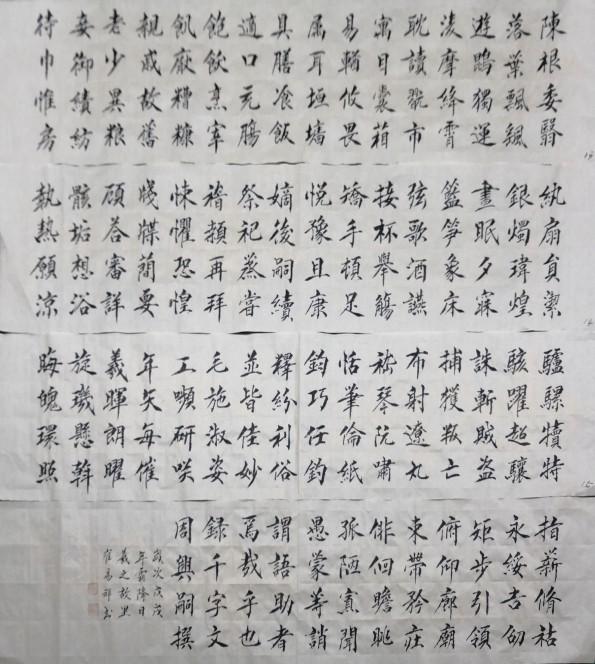 陳根委翳
落葉飄颻
遊鵾獨運
凌摩絳霄
耽讀翫市
寓目囊箱
易輶攸畏
属耳垣墻
具膳飡飯
適口充腸
飽飫烹宰
飢厭糟糠
親戚故舊
老少異糧
妾御績紡
侍巾帷房
13
紈扇員潔
銀燭瑋煌
晝眠夕寐
籃筍象床
弦歌酒讌
接杯舉觴
矯手頓足
悅豫且康
嫡後嗣續
祭祀蒸嘗
稽顙再拜
悚懼恐惶
牋牒簡要
顧答審詳
骸垢想浴
執熱願涼
14
驢騾犢特
駭躍超驤
誅斬賊盜
捕獲叛亡
布射遼丸
嵇琴阮嘯
恬筆倫紙
鈞巧任釣
釋紛利俗
並皆佳妙
毛施淑姿
工嚬研咲
年矢每催
羲暉朗曜
旋璣懸斡
晦魄環照
15
指薪脩祜
永綏吉劭
矩步引領
俯仰廊廟
束帶矜莊
徘徊瞻眺
孤陋寡聞
愚蒙等誚
謂語助者
焉哉乎也
録千字文
周興嗣撰
歲次戊戌
年霜降日
羲之故里